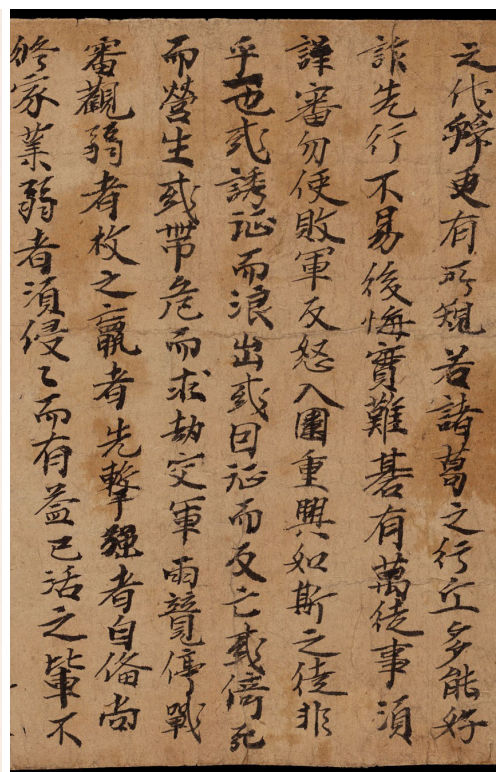 之伐辭更有所規若諸葛之行丘多能好
詐先行不易後悔實難碁有萬徒事須
謹審勿使敗軍反怒入圍重興如斯之徒非
乎一也或誘征而浪出或因征而反亡或倚死
而營生或帶危而求劫交軍兩競停戰
審觀弱者枚之羸者先擊強者自俻尚
修家業弱者須侵々而有益已活之軰不